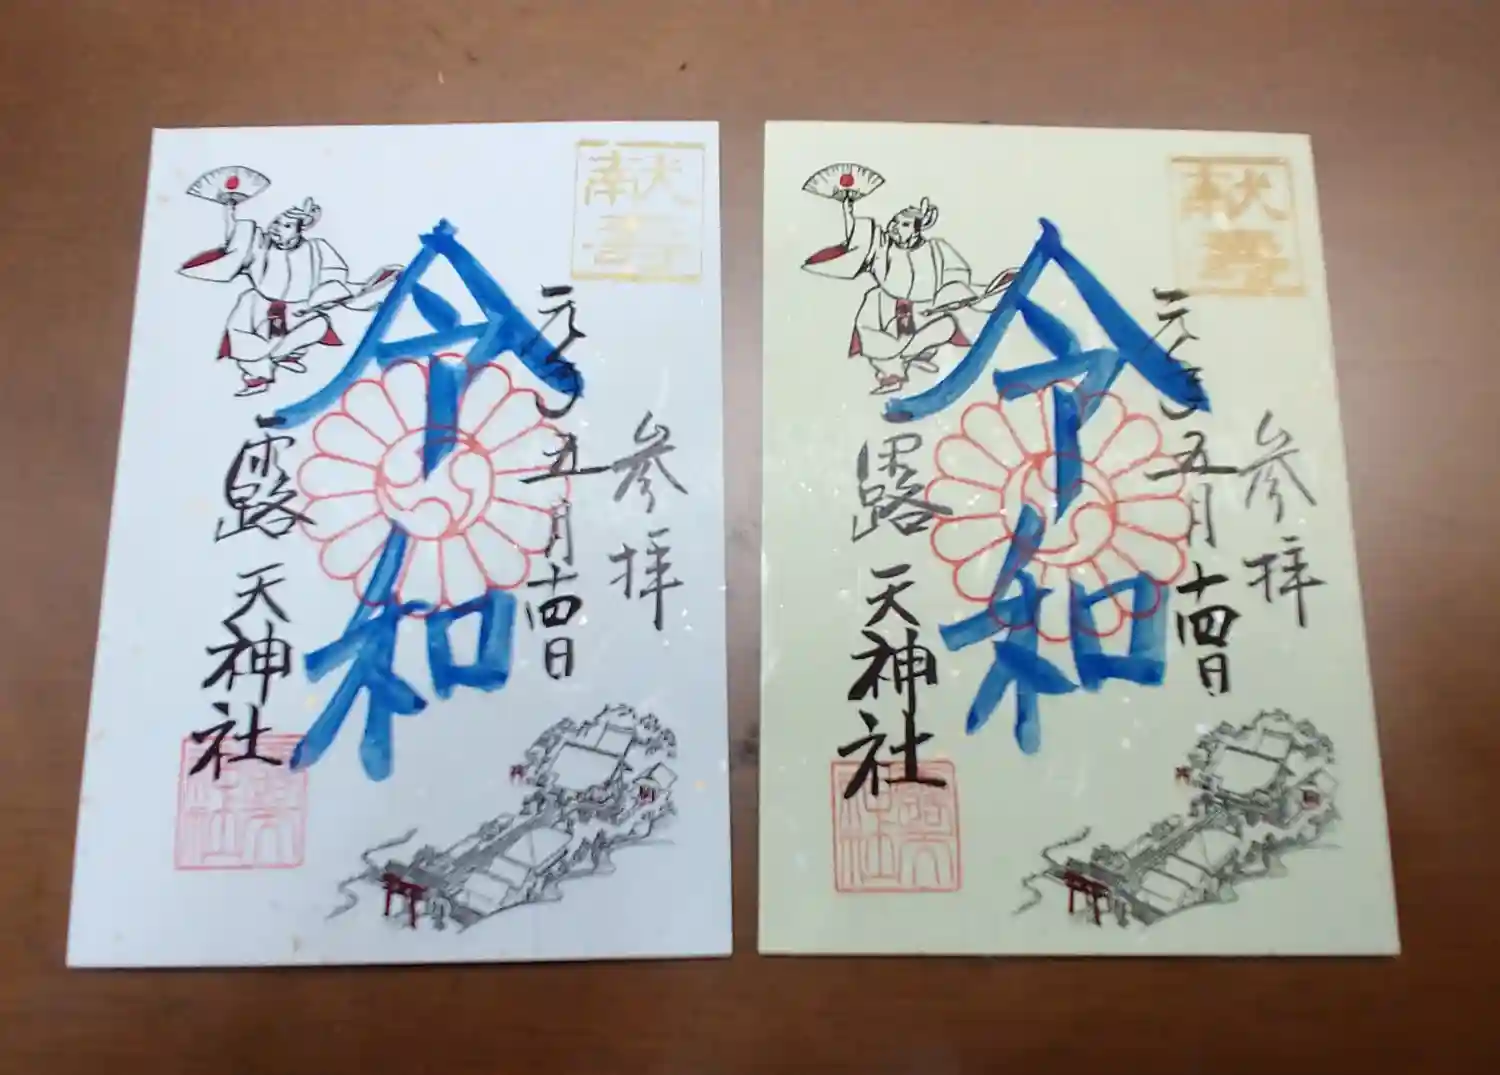 献
参拝
元年五月十四日
令和
露天神社
献
参拝
元年五月十四日
令和
露天神社